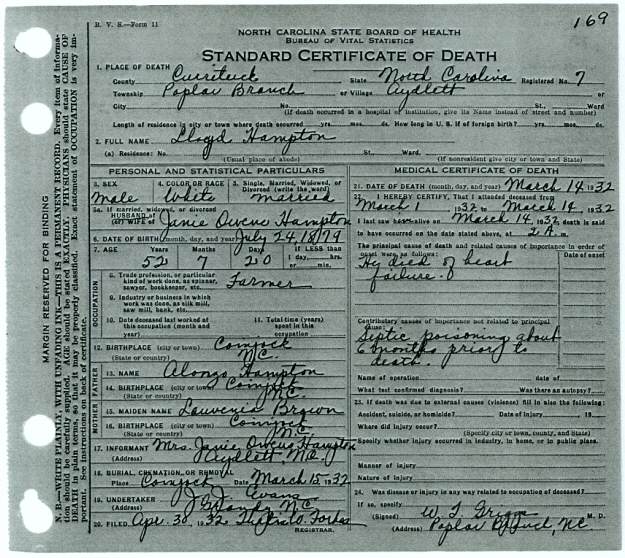 169
R. V. S.—Form 11
NORTH CAROLINA STATE BOARD OF HEALTH
BUREAU OF VITAL STATISTICS
STANDARD CERTIFICATE OF DEATH
1. PLACE OF DEATH
County Currituck State North Carolina Registered No. 7
Township Poplar Branch or Village Aydlett or
City No. St., Ward
(If death occurred in a hospital or institution, give its Name instead of street and number)
Length of residence in city or town where death occurred yrs. mos. ds. How long in U. S. if of foreign birth? yrs. mos. ds.
2. FULL NAME Lloyd Hampton
(a) Residence: No. St., Ward.
(Usual place of abode) (If nonresident give city or town and State)
PERSONAL AND STATISTICAL PARTICULARS
3. SEX 4. COLOR OR RACE 5. Single, Married, Widowed, or Divorced (write the word)
Male White Married
5a. If married, widowed, or divorced
HUSBAND of
(or) WIFE of Janie Owens Hampton
6. DATE OF BIRTH (month, day, and year) July 24, 1879
7. AGE Years Months Days If LESS than
1 day, hrs.
or min.
52 7 20
OCCUPATION
8. Trade, profession, or particular
kind of work done, as spinner,
sawyer, bookkeeper, etc. Farmer
9. Industry or business in which
work was done, as silk mill,
saw mill, bank, etc.
10. Date deceased last worked at
this occupation (month and
year)
11. Total time (years)
spent in this
occupation
12. BIRTHPLACE (city or town) Comjock
(State or country) N.C.
FATHER
13. NAME Alonzo Hampton
14. BIRTHPLACE (city or town) Comjock
(State or country) N.C.
MOTHER
15. MAIDEN NAME Louvenia Brown
16. BIRTHPLACE (city or town) Comjock
(State or country) N.C.
17. INFORMANT Mrs. Janie Owens Hampton
(Address) Aydlett, N.C.
18. BURIAL, CREMATION, OR REMOVAL
Place Comjock Date March 15, 1932
19. UNDERTAKER J. J. Evans
(Address) N.C.
20. FILED Apr. 30, 1932 Forbes
REGISTRAR.
MEDICAL CERTIFICATE OF DEATH
21. DATE OF DEATH (month, day, and year) March 14, 1932
22. I HEREBY CERTIFY, That I attended deceased from
March 1 1932 to March 14, 1932
I last saw alive on March 14, 1932 death is said
to have occurred on the date stated above, at 2 A. m.
The principal cause of death and related causes of importance in order of
onset were as follows: Date of onset
He died of heart
failure.
Contributory causes of importance not related to principal
cause:
Septic poisoning about
6 months prior to
death.
Name of operation date of
What test confirmed diagnosis? Was there an autopsy?
23. If death was due to external causes (violence) fill in also the following:
Accident, suicide, or homicide? Date of injury , 19
Where did injury occur?
(Specify city or town, county, and State)
Specify whether injury occurred in industry, in home, or in public place.
Manner of injury
Nature of injury
24. Was disease or injury in any way related to occupation of deceased?
If so, specify
(Signed) W. T. Griggs M. D.
(Address) Poplar Branch, N.C.
MARGIN RESERVED FOR BINDING
N. B.—WRITE PLAINLY, WITH UNFADING INK—THIS IS A PERMANENT RECORD. Every item of information should be carefully supplied. AGE should be stated EXACTLY. PHYSICIANS should state CAUSE OF DEATH in plain terms, so that it may be properly classified. Exact statement of OCCUPATION is very important. See instructions on back of certificate.